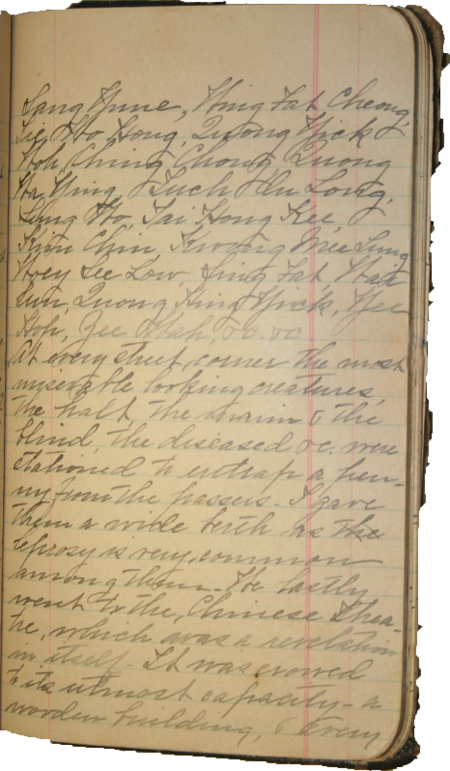 Sang Yune, Wing Fat Cheong,
Lee Wo Hong, Quong Yick
Woh, Ching Chong, Quong
Wa Ying, Tuch Hu Long,
Lung Wo, Tai Hong Kee,
Kim Chin, Kwong Mee Lung
Hoey See Low, Sing Fat, Wah
Lun, Quong Hing Yick, Yee
Hoh, Gee Wah, &c. &c
At every street corner the most
miserable looking creatures,
the halt, the maim & the
blind, the diseased &c. were
stationed to entrap a pen-
ny from the passers. I gave
them a wide berth as the
leprosy is very common
among them. We lastly
went to the, Chinese Thea-
tre, which was a revelation
in itself. It was crowed
to its utmost capacity - a
wooden building, & every